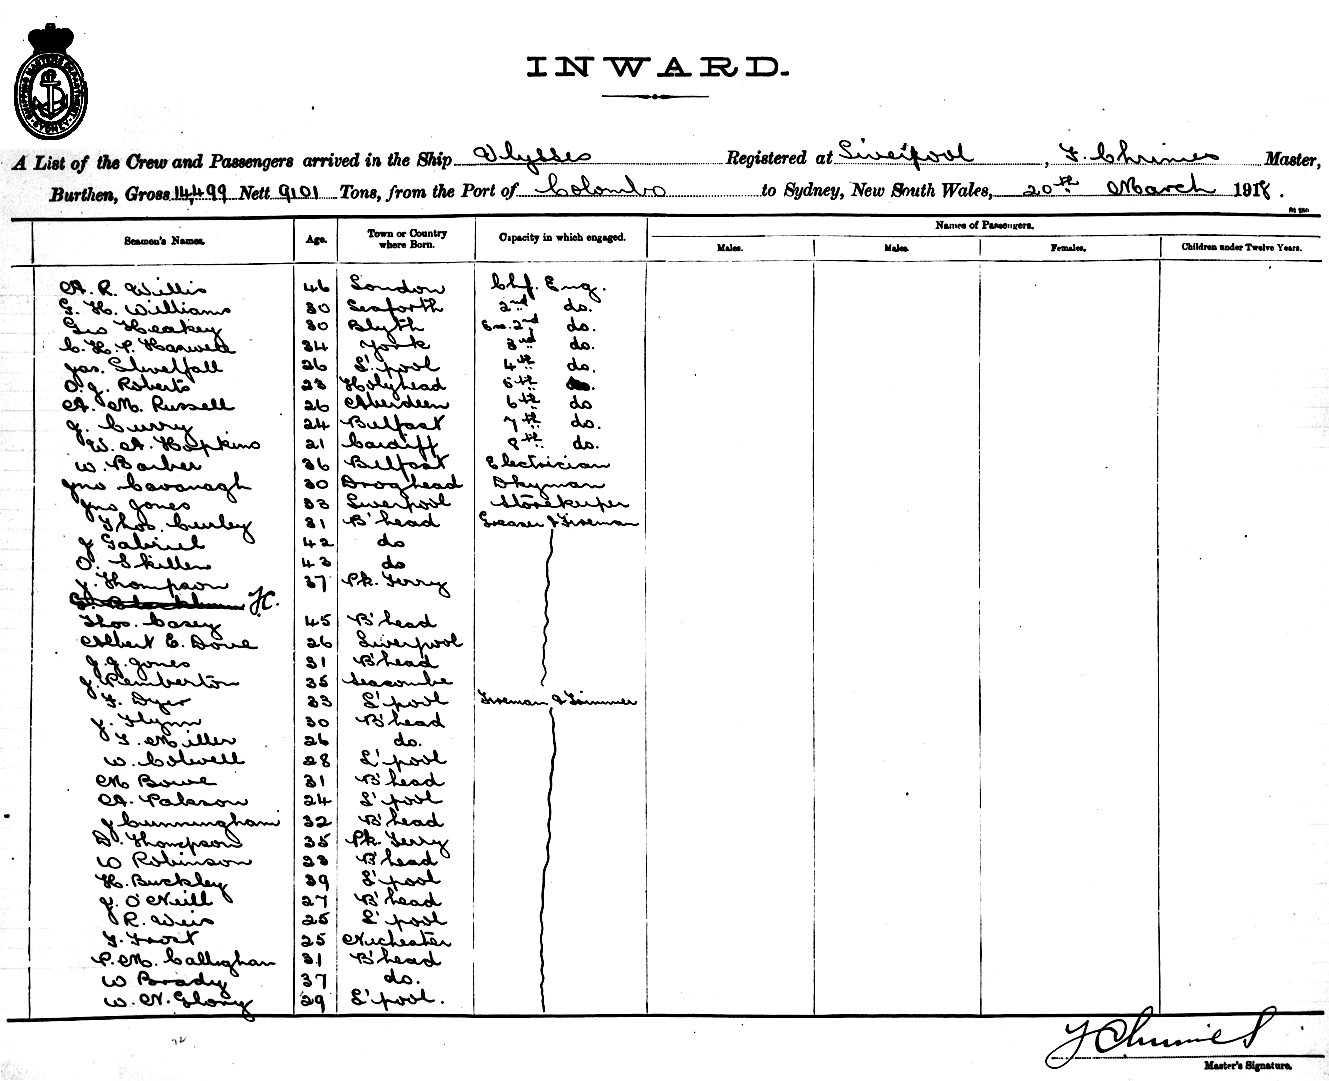 INWARD.
A List of the Crew and Passengers arrived in the Ship Ulysses Registered at Liverpool, F. Chrimes Master,
Burthen, Gross 14,499 Nett 9101 Tons, from the Port of Colombo to Sydney, New South Wales, 20th March 1918.
Names of Passengers.
Seamen's Names. Age. Town or Country where Born. Capacity in which engaged. Males. Males. Females. Children under Twelve Years.
A. R. Willis 46 London Chf. Eng.
G. H. Williams 30 Seaforth 2nd do.
Geo Heakey 30 Blyth 2nd do.
C. H. P. 34 York 3rd do.
Jas. 26 L'pool 4th do.
O. J. Roberts 23 Holyhead 5th do.
A. M. Russell 26 Aberdeen 6th do
J. Curry 24 Belfast 7th do.
W. A. Hopkins 21 Cardiff 8th do.
W. Barber 36 Belfast Electrician
Jno Cavanagh 30 Droghead Dkyman
Jno Jones 33 Liverpool Storekeeper
Thos. Curley 31 B'head Greaser & Fireman
J Gabriel 42 do
O. Skillen 43 do
J. Thompson 37 Rk. Ferry
Thos. Casey 45 B'head
Albert E. Dove 26 Liverpool
J. J. Jones 31 B'head
J. Pemberton 35 Seacombe
F. Dyer 33 L'pool Fireman & Trimmer
J. Flynn 30 B'head
F. Miller 26 do.
W. Colwell 28 L'pool
M Bowe 31 B'head
A. 24 L'pool
J Cunningham 32 B'head
D. Thompson 35 Rk. Ferry
W Robinson 23 B'head
H. Buckley 39 L'pool
J. O'Neill 27 B'head
R. Weir 25 L'pool
F. Frost 25 
P. M. Callighan 31 B'head
W Brady 37 do.
W. N. Glony 29 L'pool.
F Chrimes
Master's Signature.